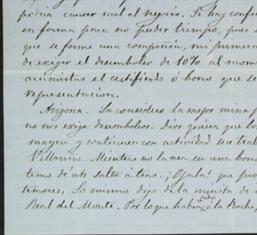 podria causar mal al negocio. Si hay confi
en forma para no perder tiempo, pues
que se forme una compañia, mi primera
de exigir el desembolso de 10% al mom
accionistas el certificado ó bono que se
representacion.
Arizona. La considero la mejor mina
no nos exige desembolsos. Dios quiera que lo
mayor y continuen con actividad sus tra
Villarino. Mientras no la vea en una bon
temo d'esté salto atras. ¡Ojalá! que
temores. Lo mismo digo de la minita de
Real del Monte. Por lo que habia la Bache,